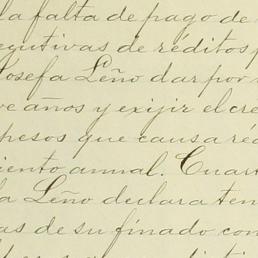 la falta de pago de
ecutivas de réditos
Josefa Leño dar por
ve años y exijir el cre
pesos que causa réd
iento annal. Cuart
a Leño declara ten
as de su finado con